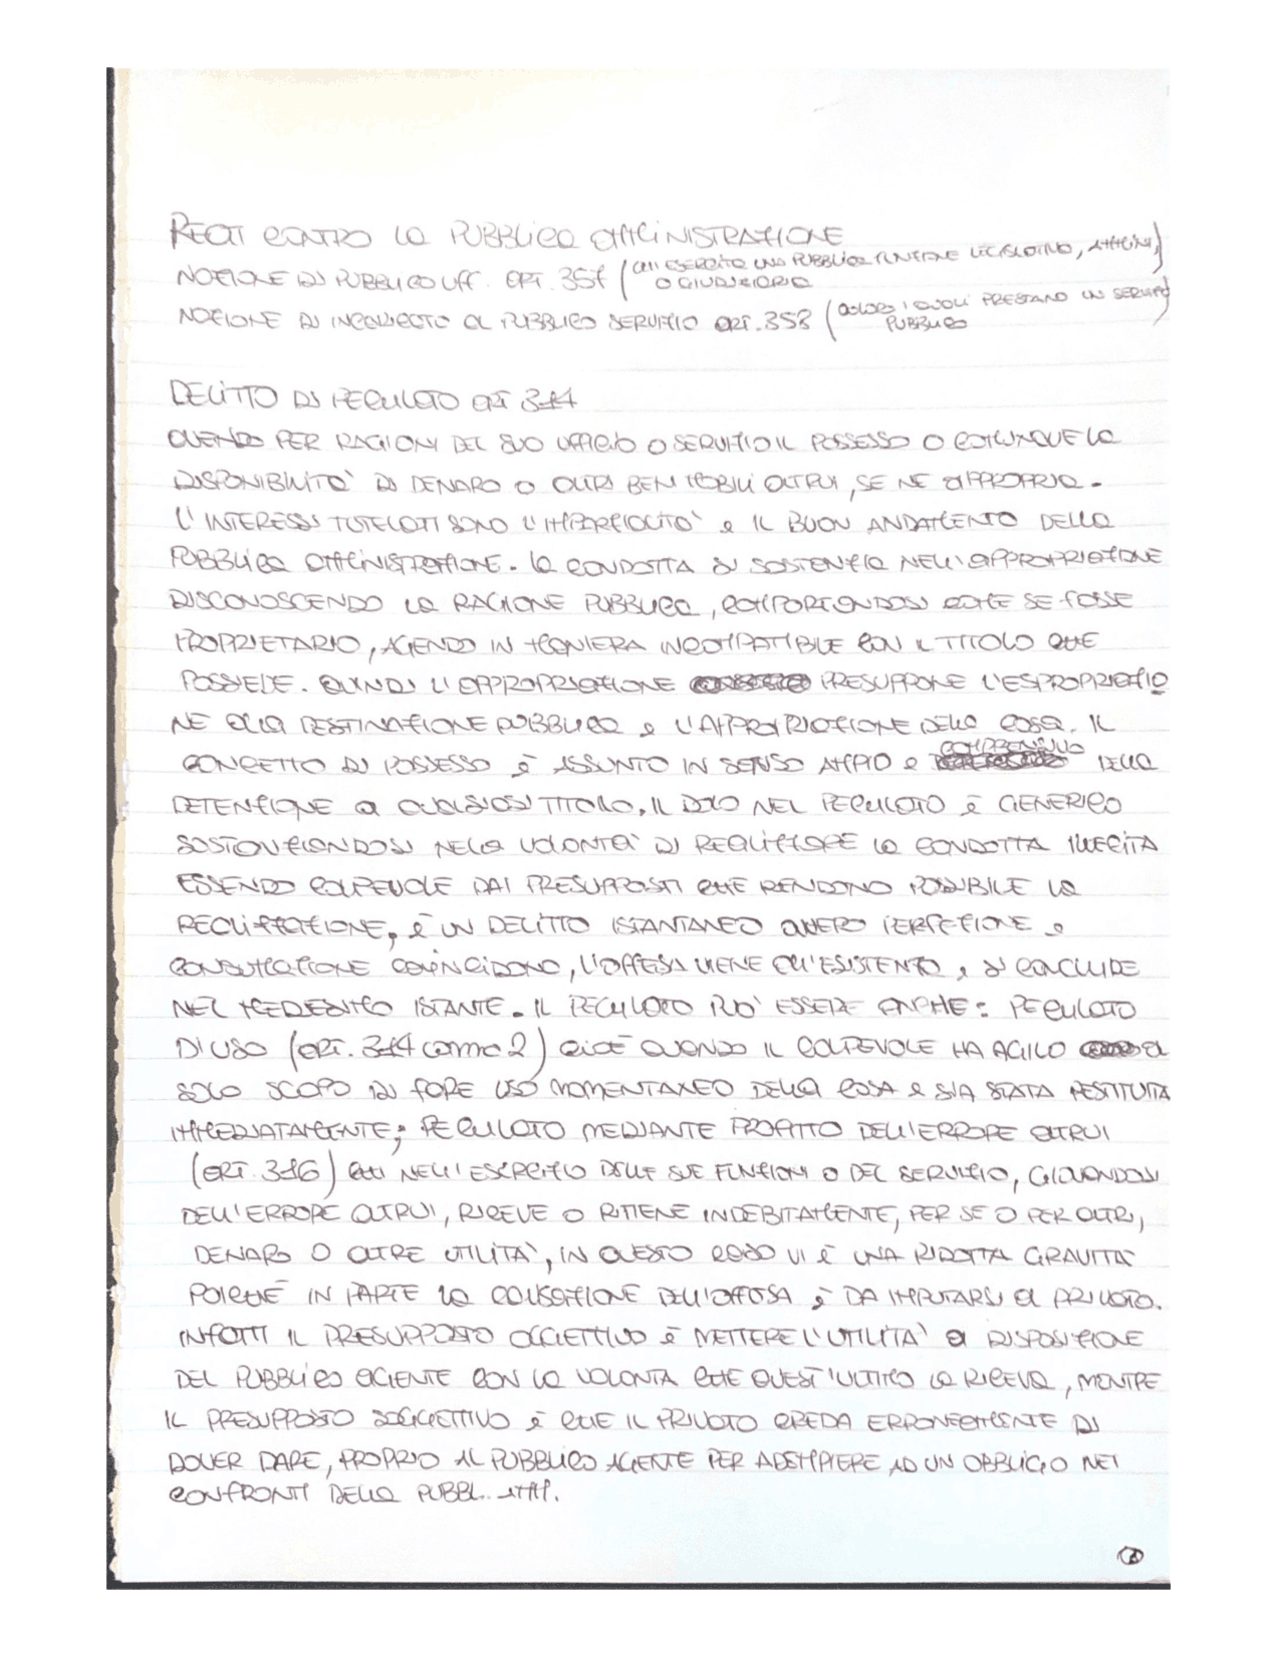 REATI CONTRO LA PUBBLICA AMMINISTRAZIONE
NOZIONE DI PUBBLICO UFF. ART. 357 (CHI ESERCITA UNA PUBBLICA FUNZIONE LEGISLATIVA, AMMINI,
O GIUDIZIARIA)
NOZIONE DI INCARICATO AL PUBBLICO SERVIZIO ART. 358 (COLORO I QUALI PRESTANO UN SERVIZIO
PUBBLICO)
DELITTO DI PECULATO ART 314
QUANDO PER RAGIONI DEL SUO UFFICIO O SERVIZIO IL POSSESSO O COMUNQUE LA
DISPONIBILITÀ DI DENARO O ALTRI BENI MOBILI ALTRUI, SE NE APPROPRIA.
L'INTERESSI TUTELATI SONO L'IMPARZIALITÀ e IL BUON ANDAMENTO DELLA
PUBBLICA AMMINISTRAZIONE. LA CONDOTTA SI SOSTANZIA NELL'APPROPRIAZIONE
DISCONOSCENDO LA RAGIONE PUBBLICA, COMPORTANDOSI COME SE FOSSE
PROPRIETARIO, AGENDO IN MANIERA INCOMPATIBILE CON IL TITOLO CHE
POSSIEDE. QUINDI L'APPROPRIAZIONE PRESUPPONE L'ESPROPRIAZIO
NE ALLA DESTINAZIONE PUBBLICA e L'APPROPRIAZIONE DELLA COSA. IL
CONCETTO DI POSSESSO è ASSUNTO IN SENSO AMPIO e COMPRENSIVO DELLA
DETENZIONE A QUALSIASI TITOLO. IL DOLO NEL PECULATO è GENERICO
SOSTANZIANDOSI NELLA VOLONTÀ DI REALIZZARE LA CONDOTTA ILLECITA
ESSENDO COLPEVOLE DAI PRESUPPOSTI CHE RENDONO POSSIBILE LA
REALIZZAZIONE, è UN DELITTO ISTANTANEO OVVERO PERFEZIONE e
CONSUMAZIONE COINCIDONO, L'OFFESA VIENE ALL'ESISTENTO, e SI CONCLUDE
NEL MEDESIMO ISTANTE. IL PECULATO PUÒ ESSERE ANCHE: PECULATO
DI USO (ART. 314 comma 2) CIOÈ QUANDO IL COLPEVOLE HA AGILO AL
SOLO SCOPO DI FARE USO MOMENTANEO DELLA COSA e SIA STATA RESTITUITA
IMMEDIATAMENTE; PECULATO MEDIANTE PROFITTO DELL'ERRORE ALTRUI
(ART. 316) CHI NELL'ESERCIZIO DELLE SUE FUNZIONI O DEL SERVIZIO, GIOVANDOSI
DELL'ERRORE ALTRUI, RICEVE O RITIENE INDEBITAMENTE, PER SE O PER ALTRI,
DENARO O ALTRE UTILITÀ, IN QUESTO CASO VI È UNA RIDOTTA GRAVITÀ
POICHÈ IN PARTE LA CAUSAZIONE DELL'OFFESA è DA IMPUTARSI AL PRIVATO.
INFATTI IL PRESUPPOSTO OGGETTIVO è METTERE L'UTILITÀ A DISPOSIZIONE
DEL PUBBLICO AGENTE CON LA VOLONTÀ CHE QUEST'ULTIMO LA RICEVA, MENTRE
IL PRESUPPOSTO SOGGETTIVO è CHE IL PRIVATO CREDA ERRONEAMENTE DI
DOVER DARE, PROPRIO AL PUBBLICO AGENTE PER ADEMPIERE AD UN OBBLIGIO NEI
CONFRONTI DELLA PUBBL. AMM.